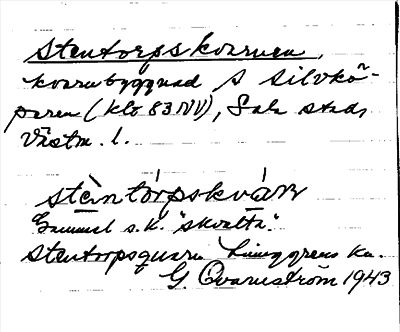 Stentorpskvarnen,
kvarnbyggnad S Silvkö-
paren (klo 83 NV), Sala stad,
Västm. l.
stèntórpskván
Gammal s.k. "skvalta".
Stentorpsquarn Ljunggrens ka.
G. Qvarnström 1943